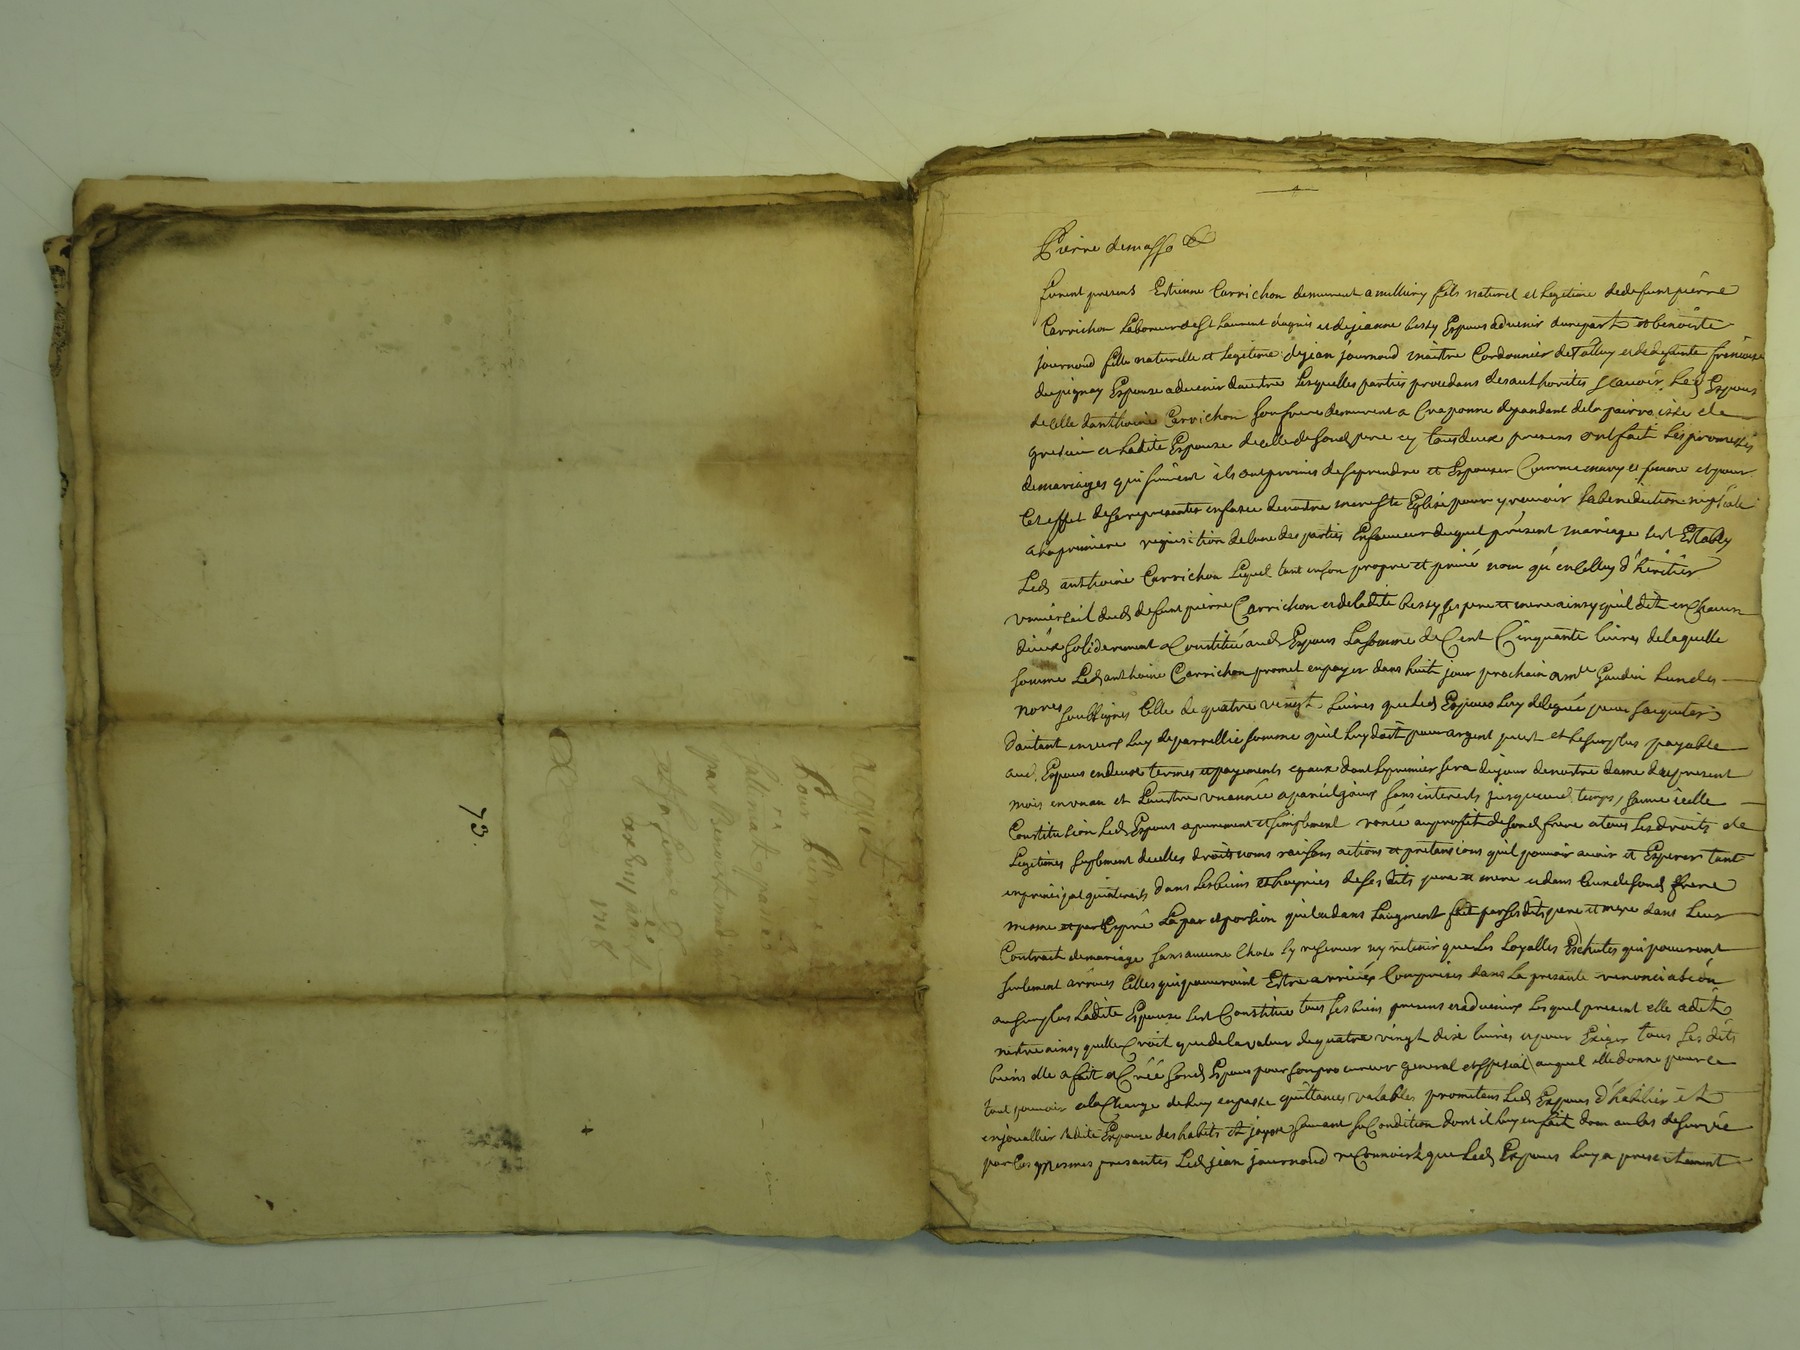 acquit
Pour Sr
par Benoist
et sa femme
1718
73.
Pierre demasso &
furent presens Estienne Carrichon demeurant a millery fils naturel et legitime dedefunt pierre
Carrichon Laboureur de St Laurent dagnis et dejeanne bessy Espous advenir dunepart et benoiste
journoud fille naturelle et legitime dejean journoud maitre Cordonnier deTalluy et dedefunte
dupignay Espouse advenir dautre Lesquelles parties procedans desauthorités scavoir Led Espous
decelle danthoine Carrichon son frere demeurent a Craponne dependant dela parroisse de
et Ladite Espouse decelle desond pere cy tous deux presens ont fait Les promesses
demariages qui suivent ils ont promis deseprendre et Espouser Comme mary et femme et pour
Cet effet de se representer en face denotre mere ste Eglise pour y recevoir La benediction nuptiale
a la premiere requisition delune des parties En faveur duquel present mariage sest Estably
Led anthoine Carrichon Lequel tant en son propre et privé nom qu'en Celluy d'héritier
universel dud defunt pierre Carrichon et deladite bessy ses pere et mere ainsy quil dit en chacun
diceux solidairement a Constitué aud Espous La somme de Cent Cinquante livres delaquelle
somme Led anthoine Carrichon promet en payer dans huit jour prochain a mtre Gaudin Lundes
nores soussignes Celle de quatre vingt Livres que Led Espous Luy delegue pour saquiter
dautant envers Luy depareillie somme quil Luy doit pour argent prest et Lesurplus payable
aud Espous en deux termes et payements egaux dont Lepremier sera dujour denostre dame du present
mois en un an et Lautre une année a pareil jour sans interests jusqueaud temps,
Constitution Led Espous a purement et simplement renoncé au profit desond frere a tous Les droits de
Legitimes suplement dicelles droits noms raisons actions et pretansions quil pouvoit avoir et Esperer tant
en principal quinterests dans Les biens et hoyries de ses dits pere et mere et dans Ceux desond frere
mesme et par Exprès La part et portion quil a dans Laugment fait par ses dits pere et mere dans Leur
Contract demariage sans aucune Chose sy reserver ny retenir que Les Loyalles Eschutes qui pourront
seulement arriver Celles qui pourroint Estre arrivées Comprises dans La presante renonciation
au surplus Ladite Espouse sest Constitué tous ses biens presens et advenirs Lesquel present elle a dit
nestre ainsy quelle Croit que de la valeur de quatre vingt dix livres et pour Exiger tous ses dits
biens elle a fait et Créé sond Espous pour son procureur general et special auquel elle donne pour ce
tout pouvoir a la Charge de Luy en passer quittances valables promettans Led Espous d'habilier et
enjouallier Ladite Espouse des habits et joyaux suivant sa Condition dont il luy en fait don au Cas de survie
par Ces mesmes presantes Led jean journoud reConnoist que Led Espous Luy a presentement